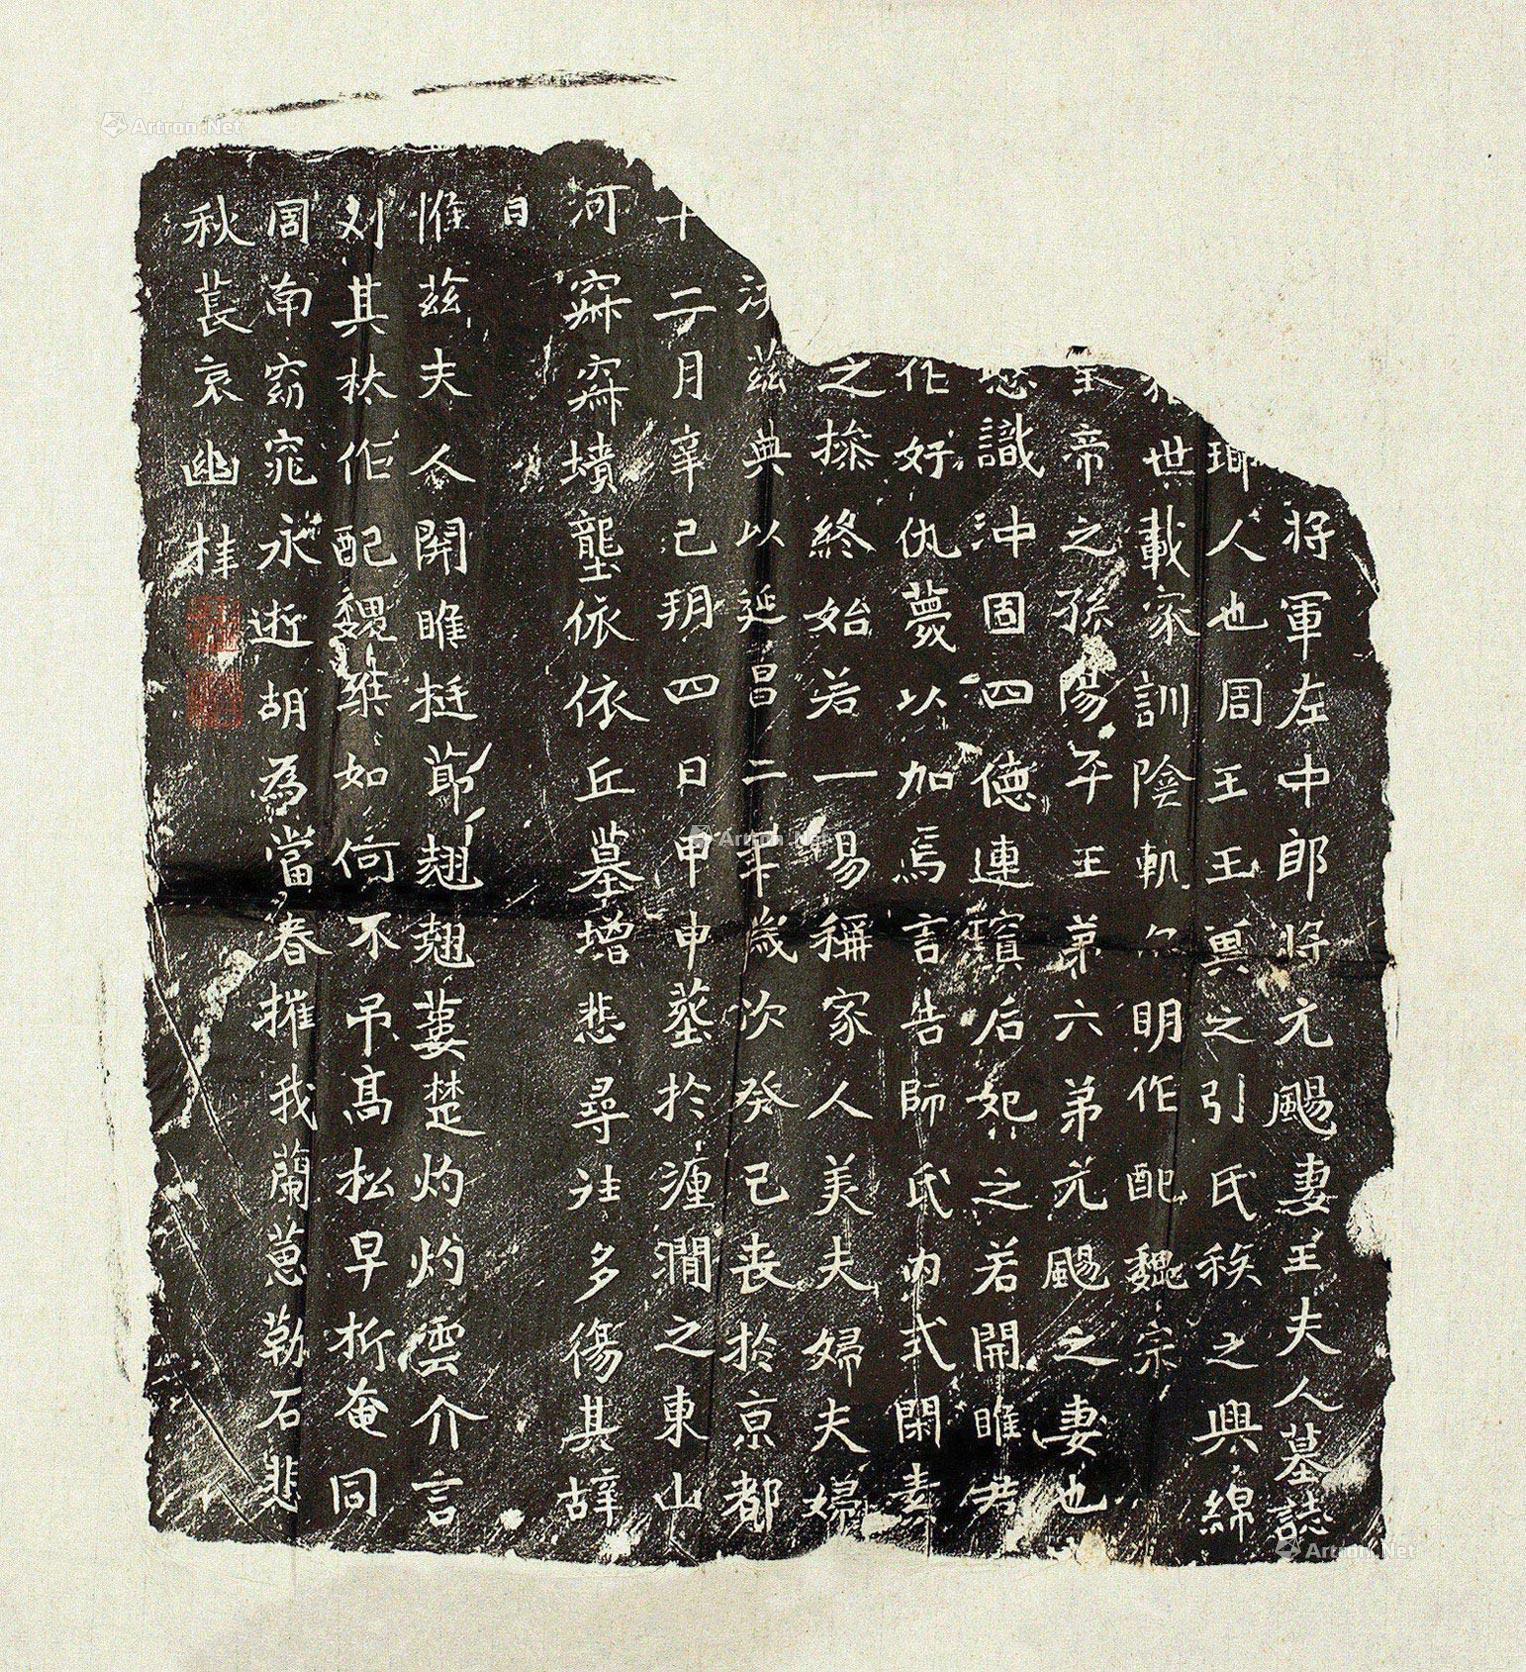 將軍左中郎將元颺妻王夫人墓誌
瑘人也周王王巽之引氏族之興綿
世載家訓陰軌尔明作配魏宗
皇帝之孫陽平王弟六弟元颺之妻也
識沖固四德連璸后妃之若開睢尹
作好仇蔑以加焉言告師氏內式閑素
之操終始若一易稱家人美夫婦夫婦
茲典以延昌二年歲次癸巳丧於京都
十二月辛巳玥四日甲申塟於瀍澗之東山
河竁竁墳壟依依丘墓增悲尋往多傷其辞
曰
惟茲夫人開睢挺節翹翹蔞楚灼灼雲介言
刈其杕作配魏維如何不吊髙松早折奄同
周南窈窕永逝胡為當春摧我蘭蕙勒石悲
秋萇哀幽挂
Artron.Net
Artron.Net
Artron.Net